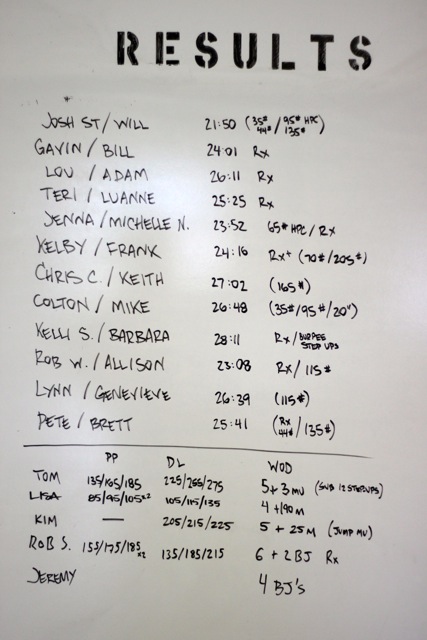 RESULTS
JOSH ST/WILL 21:50 (35#/44# / 95# HPC/135#)
GAVIN / BILL 24:01 Rx
LOU / ADAM 26:11 Rx
TERI / LUANNE 25:25 Rx
JENNA/MICHELLE N. 23:52 65# HPC / Rx
KELBY / FRANK 24:16 Rx+ (70#/205#)
CHRIS C. / KEITH 27:02 (165#)
COLTON / MIKE 26:48 (35#/95#/20")
KELLI S./BARBARA 28:11 Rx/BURPEE STEP UPS
ROB W./ALLISON 23:08 Rx/115#
LYNN / GENEVIEVE 26:39 (115#)
PETE / BRETT 25:41 (Rx 44# / 135#)
PP DL WOD
TOM 135/165/185 225/255/275 5+3MU (SUB 12 STEPUPS)
LISA 85/95/105x2 105/115/135 4+190M
KIM — 205/215/225 5 + 25M (JUMP MU)
ROB S. 155/175/185x2 135/185/215 6 + 2BJ Rx
JEREMY 4 BJ's